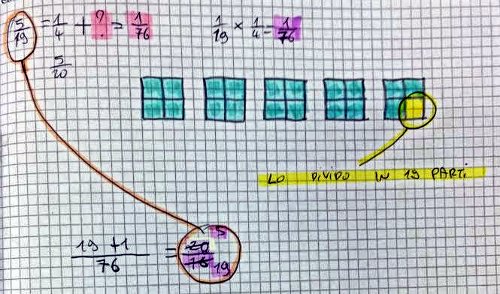 5/19 = 1/4 + ? = 1/76
1/19 × 1/4 = 1/76
5/20
LO DIVIDO IN 19 PARTI
19 + 1 / 76 = 20/76 5/19